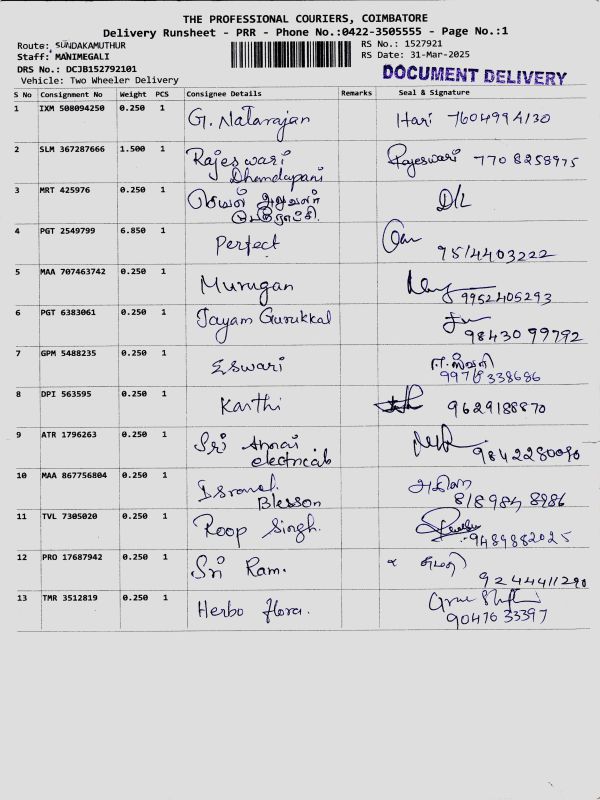 THE PROFESSIONAL COURIERS, COIMBATORE
Delivery Runsheet - PRR - Phone No.:0422-3505555 - Page No.:1
Route: SUNDAKAMUTHUR
RS No.: 1527921
Staff: MANIMEGALI
RS Date: 31-Mar-2025
DRS No.: DCJB152792101
DOCUMENT DELIVERY
Vehicle: Two Wheeler Delivery
S No Consignment No Weight PCS Consignee Details Remarks Seal & Signature
1 IXM 508094250 0.250 1 G. Natarajan Hari 7604994130
2 SLM 367287666 1.500 1 Rajeswari Rajeswari 7708258975
Dhandapani
3 MRT 425976 0.250 1 D/L
4 PGT 2549799 6.850 1 Perfect
9514403222
5 MAA 707463742 0.250 1 Murugan
9952405293
6 PGT 6383061 0.250 1 Jayam Gurukkal
98430 99792
7 GPM 5488235 0.250 1 Eswari
9976338686
8 DPI 563595 0.250 1 Karthi 9629188870
9 ATR 1796263 0.250 1 Sri Annai
electricals 9842280090
10 MAA 867756804 0.250 1
Blesson 818984 8986
11 TVL 7305020 0.250 1 Roop Singh.
9489882025
12 PRO 17687942 0.250 1 Sri Ram.
9244411290
13 TMR 3512819 0.250 1 Herbo flora.
90476 33397